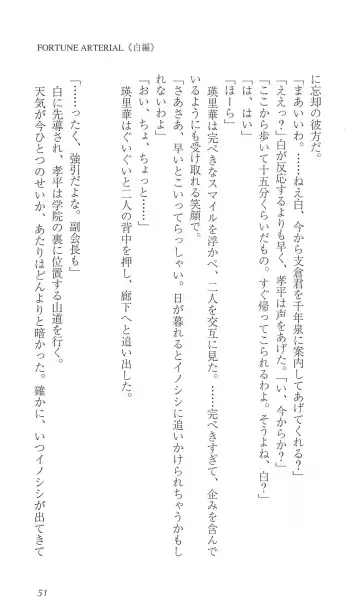 FORTUNE ARTERIAL《白編》
に忘却の彼方だ。
「まあいいわ。……ねえ白、今から支倉君を千年泉に案内してあげてくれる？」
「ええっ？」白が反応するよりも早く、孝平は声をあげた。「い、今からか？」
「ここから歩いて十五分くらいだもの。すぐ帰ってこられるわよ。そうよね、白？」
「は、はい」
「ほーら」
瑛里華は完ぺきなスマイルを浮かべ、二人を交互に見た。……完ぺきすぎて、企みを含んで
いるようにも受け取れる笑顔で。
「さあさあ、早いとこいってらっしゃい。日が暮れるとイノシシに追いかけられちゃうかもし
れないわよ」
「おい、ちょ、ちょっと……」
瑛里華はぐいぐいと二人の背中を押し、廊下へと追い出した。
「……ったく、強引だよな。副会長も」
白に先導され、孝平は学院の裏に位置する山道を行く。
天気が今ひとつのせいか、あたりはどんよりと暗かった。確かに、いつイノシシが出てきて
51